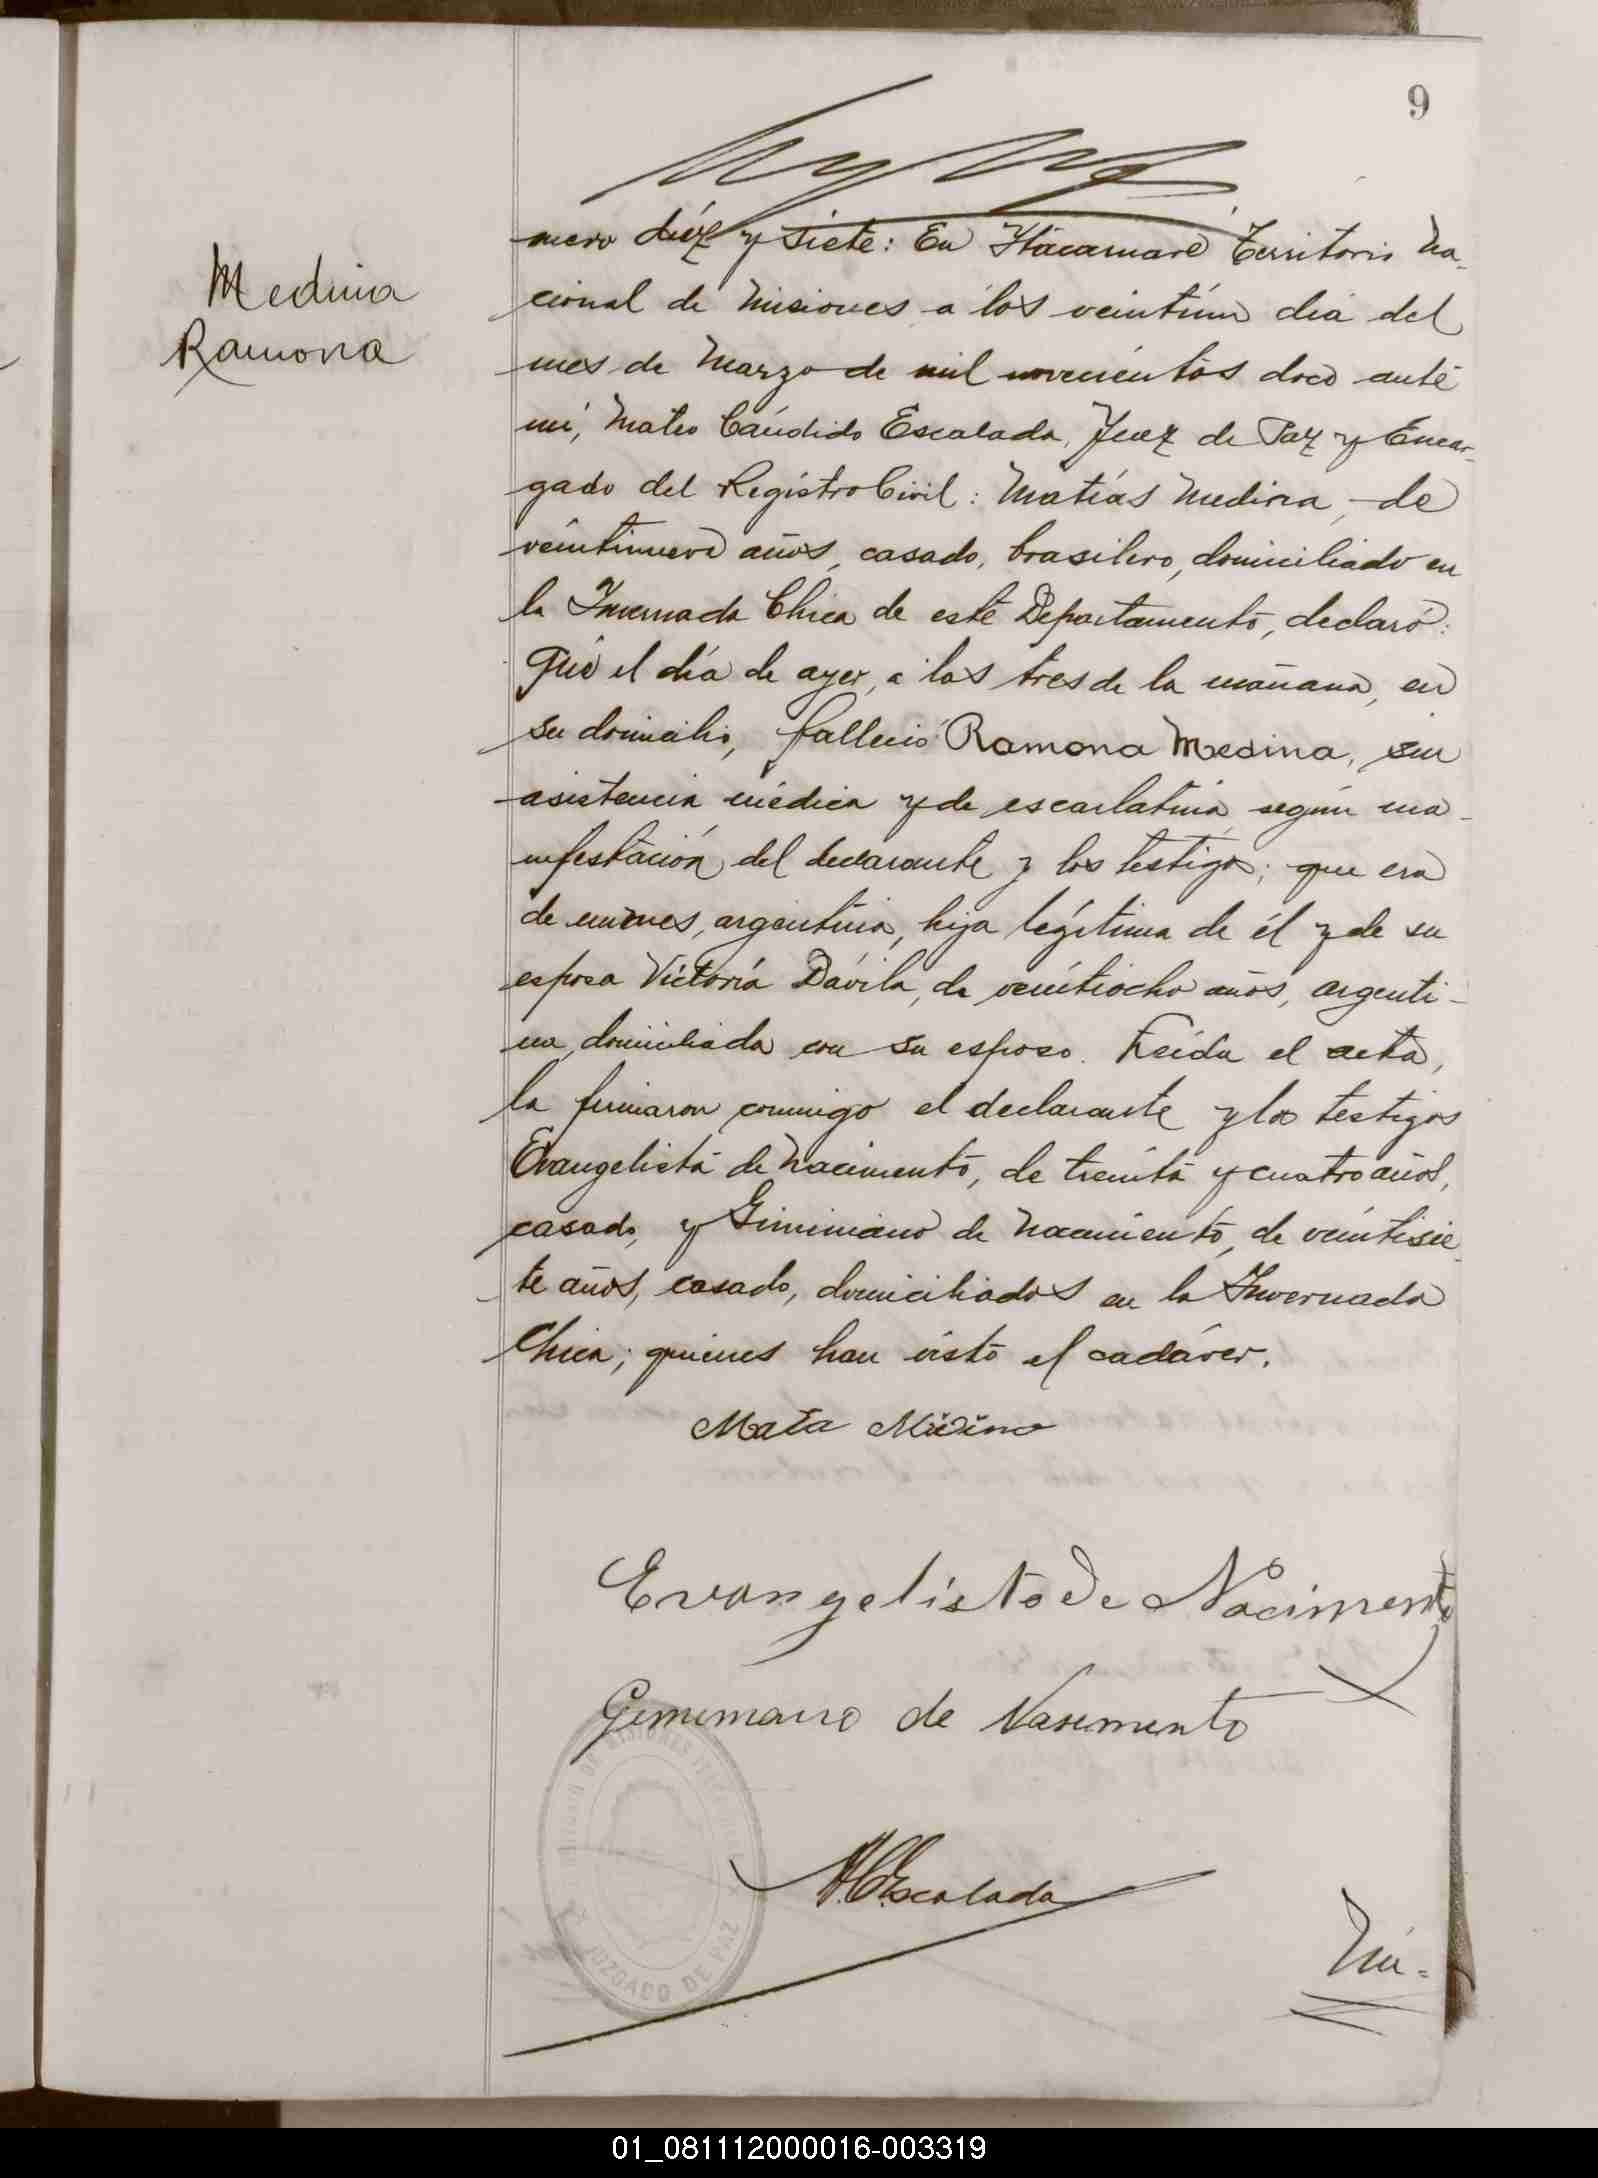 9
Medina
Ramona
mero diéz y siete: En Itacaruaré Territorio Na-
cional de Misiones a los veintiun dia del
mes de Marzo de mil novecientos doce ante
mí, Mateo Cándido Escalada, Juez de Paz y Encar-
gado del Registro Civil: Matías Medina, de
veintinueve años, casado, brasilero, domiciliado en
la Invernada Chica de este Departamento, declaró:
Que el día de ayer, a las tres de la mañana, en
su domicilio, falleció Ramona Medina, sin
asistencia médica y de escarlatina según ma-
nifestación del declarante y los testigos; que era
de un mes, argentina, hija legítima de él y de su
esposa Victoria Dávila, de veintiocho años, argenti-
na, domiciliada con su esposo. Leída el acta,
la firmaron conmigo el declarante y los testigos
Evangelista de Nacimento, de treinta y cuatro años,
casado, y Giminiano de Nacimento, de veintisie-
te años, casado, domiciliados en la Invernada
Chica; quienes han visto el cadáver.
Mata Midina
Evangelisto de Nacimento
Geminiano de Nasimento
JUZGADO DE PAZ
M.C.Escalada
Nú-
01_081112000016-003319